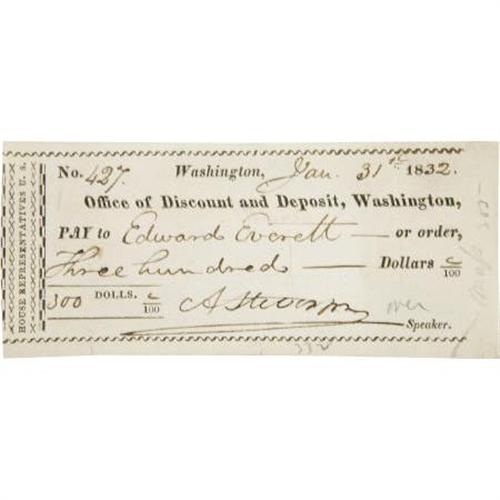 HOUSE REPRESENTATIVES U. S.
No. 427. Washington, Jan. 31st 1832.
Office of Discount and Deposit, Washington,
PAY to Edward Everett — or order,
Three hundred — Dollars c/100
300 DOLLS. c/100 A Stevenson
over
Speaker.